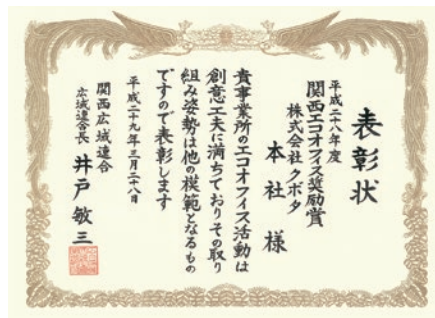 表彰状
平成二八年度
関西エコオフィス奨励賞
株式会社クボタ
本社様
貴事業所のエコオフィス活動は
創意工夫に満ちておりその取り
組み姿勢は他の模範となるもの
ですので表彰します
平成二十九年三月二十八日
関西広域連合
広域連合長 井戸敏三